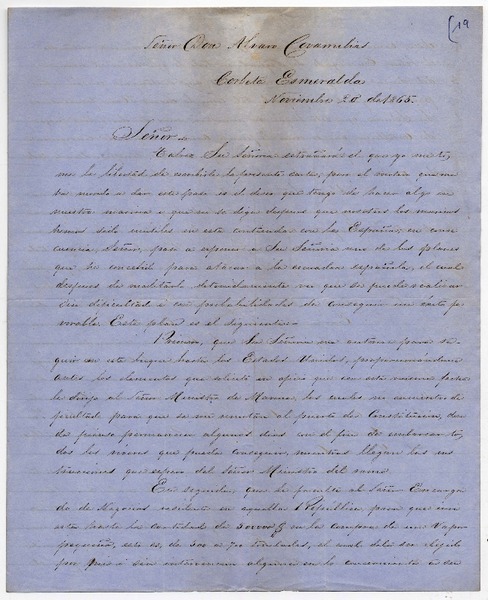 19
Señor Don Alvaro Covarrubias
Corbeta Esmeralda
Noviembre 20 de 1865.
Señor
Talvez Su Señoria estrañará el que yo me to
me la libertad de escribirle la presente carta, pero el motivo que me
ha movido a dar este paso es el deseo que tengo de hacer algo en
nuestra marina i que no se diga despues que nosotros los marinos
hemos sido inutiles en esta contienda con la España; en conse
cuencia, Señor, paso a esponer a Su Señoria uno de los planes
que he concebido para atacar a la escuadra española, el cual
despues de meditarlo detenidamente veo que se puede realizar
sin dificultad i con probabilidades de conseguir un écsito fa
vorable. Este plan es el siguiente:
Primero, que Su Señoria me autorice para se
guir en este buque hasta los Estados Unidos, proporcionándome
antes los elementos que solicito en oficio que con esta misma fecha
le dirijo al Señor Ministro de Marina, los cuales no
dificultad para que se me remitan al puerto de Constitucion, don
de pienso permanecer algunos dias con el fin de embarcar to
dos los viveres que pueda conseguir, mientras llegan las ins
trucciones que espero del Señor Ministro del ramo
En seguida, que se faculte al Señor Encarga
do de Negocios residente en aquella Republica para que in
vierta hasta la cantidad de 50000 $ en la compra de un Vapor
pequeño, esto es, de 500 a 700 toneladas, el cual debe ser elejido
por mi i sin intervencion alguna en lo concerniente a su